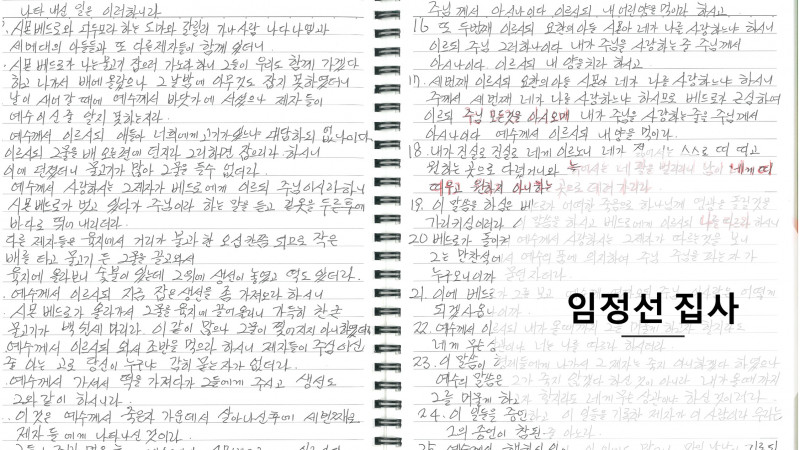 나타내신 일은 이러하니라
시몬 베드로와 디두모라 하는 도마와 갈릴리 가나 사람 나다나엘과
세베대의 아들들과 또 다른 제자들이 함께 있더니
시몬 베드로가 나는 물고기 잡으러 가노라 하니 그들이 우리도 함께 가겠다
하고 나가서 배에 올랐으나 그 날 밤에 아무것도 잡지 못하였더니
날이 새어갈 때에 예수께서 바닷가에 서셨으나 제자들이
예수이신 줄 알지 못하는지라
예수께서 이르시되 얘들아 너희에게 고기가 있느냐 대답하되 없나이다
이르시되 그물을 배 오른편에 던지라 그리하면 잡으리라 하시니
이에 던졌더니 물고기가 많아 그물을 들 수 없더라
예수께서 사랑하시는 그 제자가 베드로에게 이르되 주님이시라 하니
시몬 베드로가 벗고 있다가 주님이라 하는 말을 듣고 겉옷을 두른 후에
바다로 뛰어 내리더라
다른 제자들은 육지에서 거리가 불과 한 오십 칸쯤 되므로 작은
배를 타고 물고기 든 그물을 끌고 와서
육지에 올라보니 숯불이 있는데 그 위에 생선이 놓였고 떡도 있더라
예수께서 이르시되 지금 잡은 생선을 좀 가져오라 하시니
시몬 베드로가 올라가서 그물을 육지에 끌어 올리니 가득히 찬 큰
물고기가 백쉰세 마리라 이같이 많으나 그물이 찢어지지 아니하였더라
예수께서 이르시되 와서 조반을 먹으라 하시니 제자들이 주님이신
줄 아는 고로 당신이 누구냐 감히 묻는 자가 없더라
예수께서 가셔서 떡을 가져다가 그들에게 주시고 생선도
그와 같이 하시니라
이것은 예수께서 죽은 자 가운데서 살아나신 후에 세 번째로
제자들에게 나타나신 것이라
주님께서 아시나이다 이르시되 내 어린 양을 먹이라 하시고
16. 또 두번째 이르시되 요한의 아들 시몬아 네가 나를 사랑하느냐 하시니
이르되 주님 그러하나이다 내가 주님을 사랑하는 줄 주님께서
아시나이다. 이르시되 내 양을 치라 하시고
17. 세번째 이르시되 요한의 아들 시몬아 네가 나를 사랑하느냐 하시니
주께서 세 번째 네가 나를 사랑하느냐 하시므로 베드로가 근심하여
이르되 주님 모든 것을 아시오매 내가 주님을 사랑하는 줄을 주님께서
아시나이다 예수께서 이르시되 내 양을 먹이라.
18. 내가 진실로 진실로 네게 이르노니 네가 젊어서는 스스로 띠 띠고
원하는 곳으로 다녔거니와 늙어서는 네 팔을 벌리리니 남이 네게 띠
띠우고 원하지 아니하는 곳으로 데려가리라
19. 이 말씀을 하심은 베드로가 어떠한 죽음으로 하나님께 영광을 돌릴 것을
가리키심이러라 이 말씀을 하시고 베드로에게 이르시되 나를 따르라 하시니
20 베드로가 돌이켜 예수께서 사랑하시는 그 제자가 따르는 것을 보니
그는 만찬석에서 예수의 품에 의지하여 주님 주님을 파는 자가
누구오니이까 묻던 자더라
21. 이에 베드로가 그를 보고
되겠사옵나이까
22. 예수께서 이르시되 내가 올 때까지 그를 머물게 하고자 할지라도
네게 무슨 상관이냐 너는 나를 따르라 하시더라
23. 이 말씀이 형제들에게 나가서 그 제자는 죽지 아니하겠다 하였으나
예수의 말씀은 그가 죽지 않겠다 하신 것이 아니라 내가 올 때까지
그를 머물게 하고자 할지라도 네게 무슨 상관이냐 하신 것이러라
24. 이 일들을 증언하고 이 일들을 기록한 제자가 이 사람이라 우리는
그의 증언이 참된 줄 아노라
임정선 집사